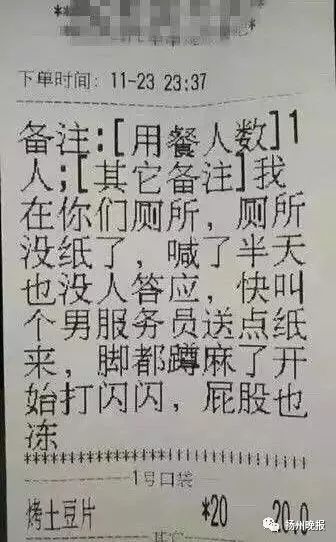 下单时间：11-23 23:37
备注:[用餐人数]1
人;[其它备注]我
在你们厕所，厕所
没纸了，喊了半天
也没人答应，快叫
个男服务员送点纸
来，脚都蹲麻了开
始打闪闪，屁股也
冻
1号口袋
烤土豆片 *20 20.0
其它
扬州晚报